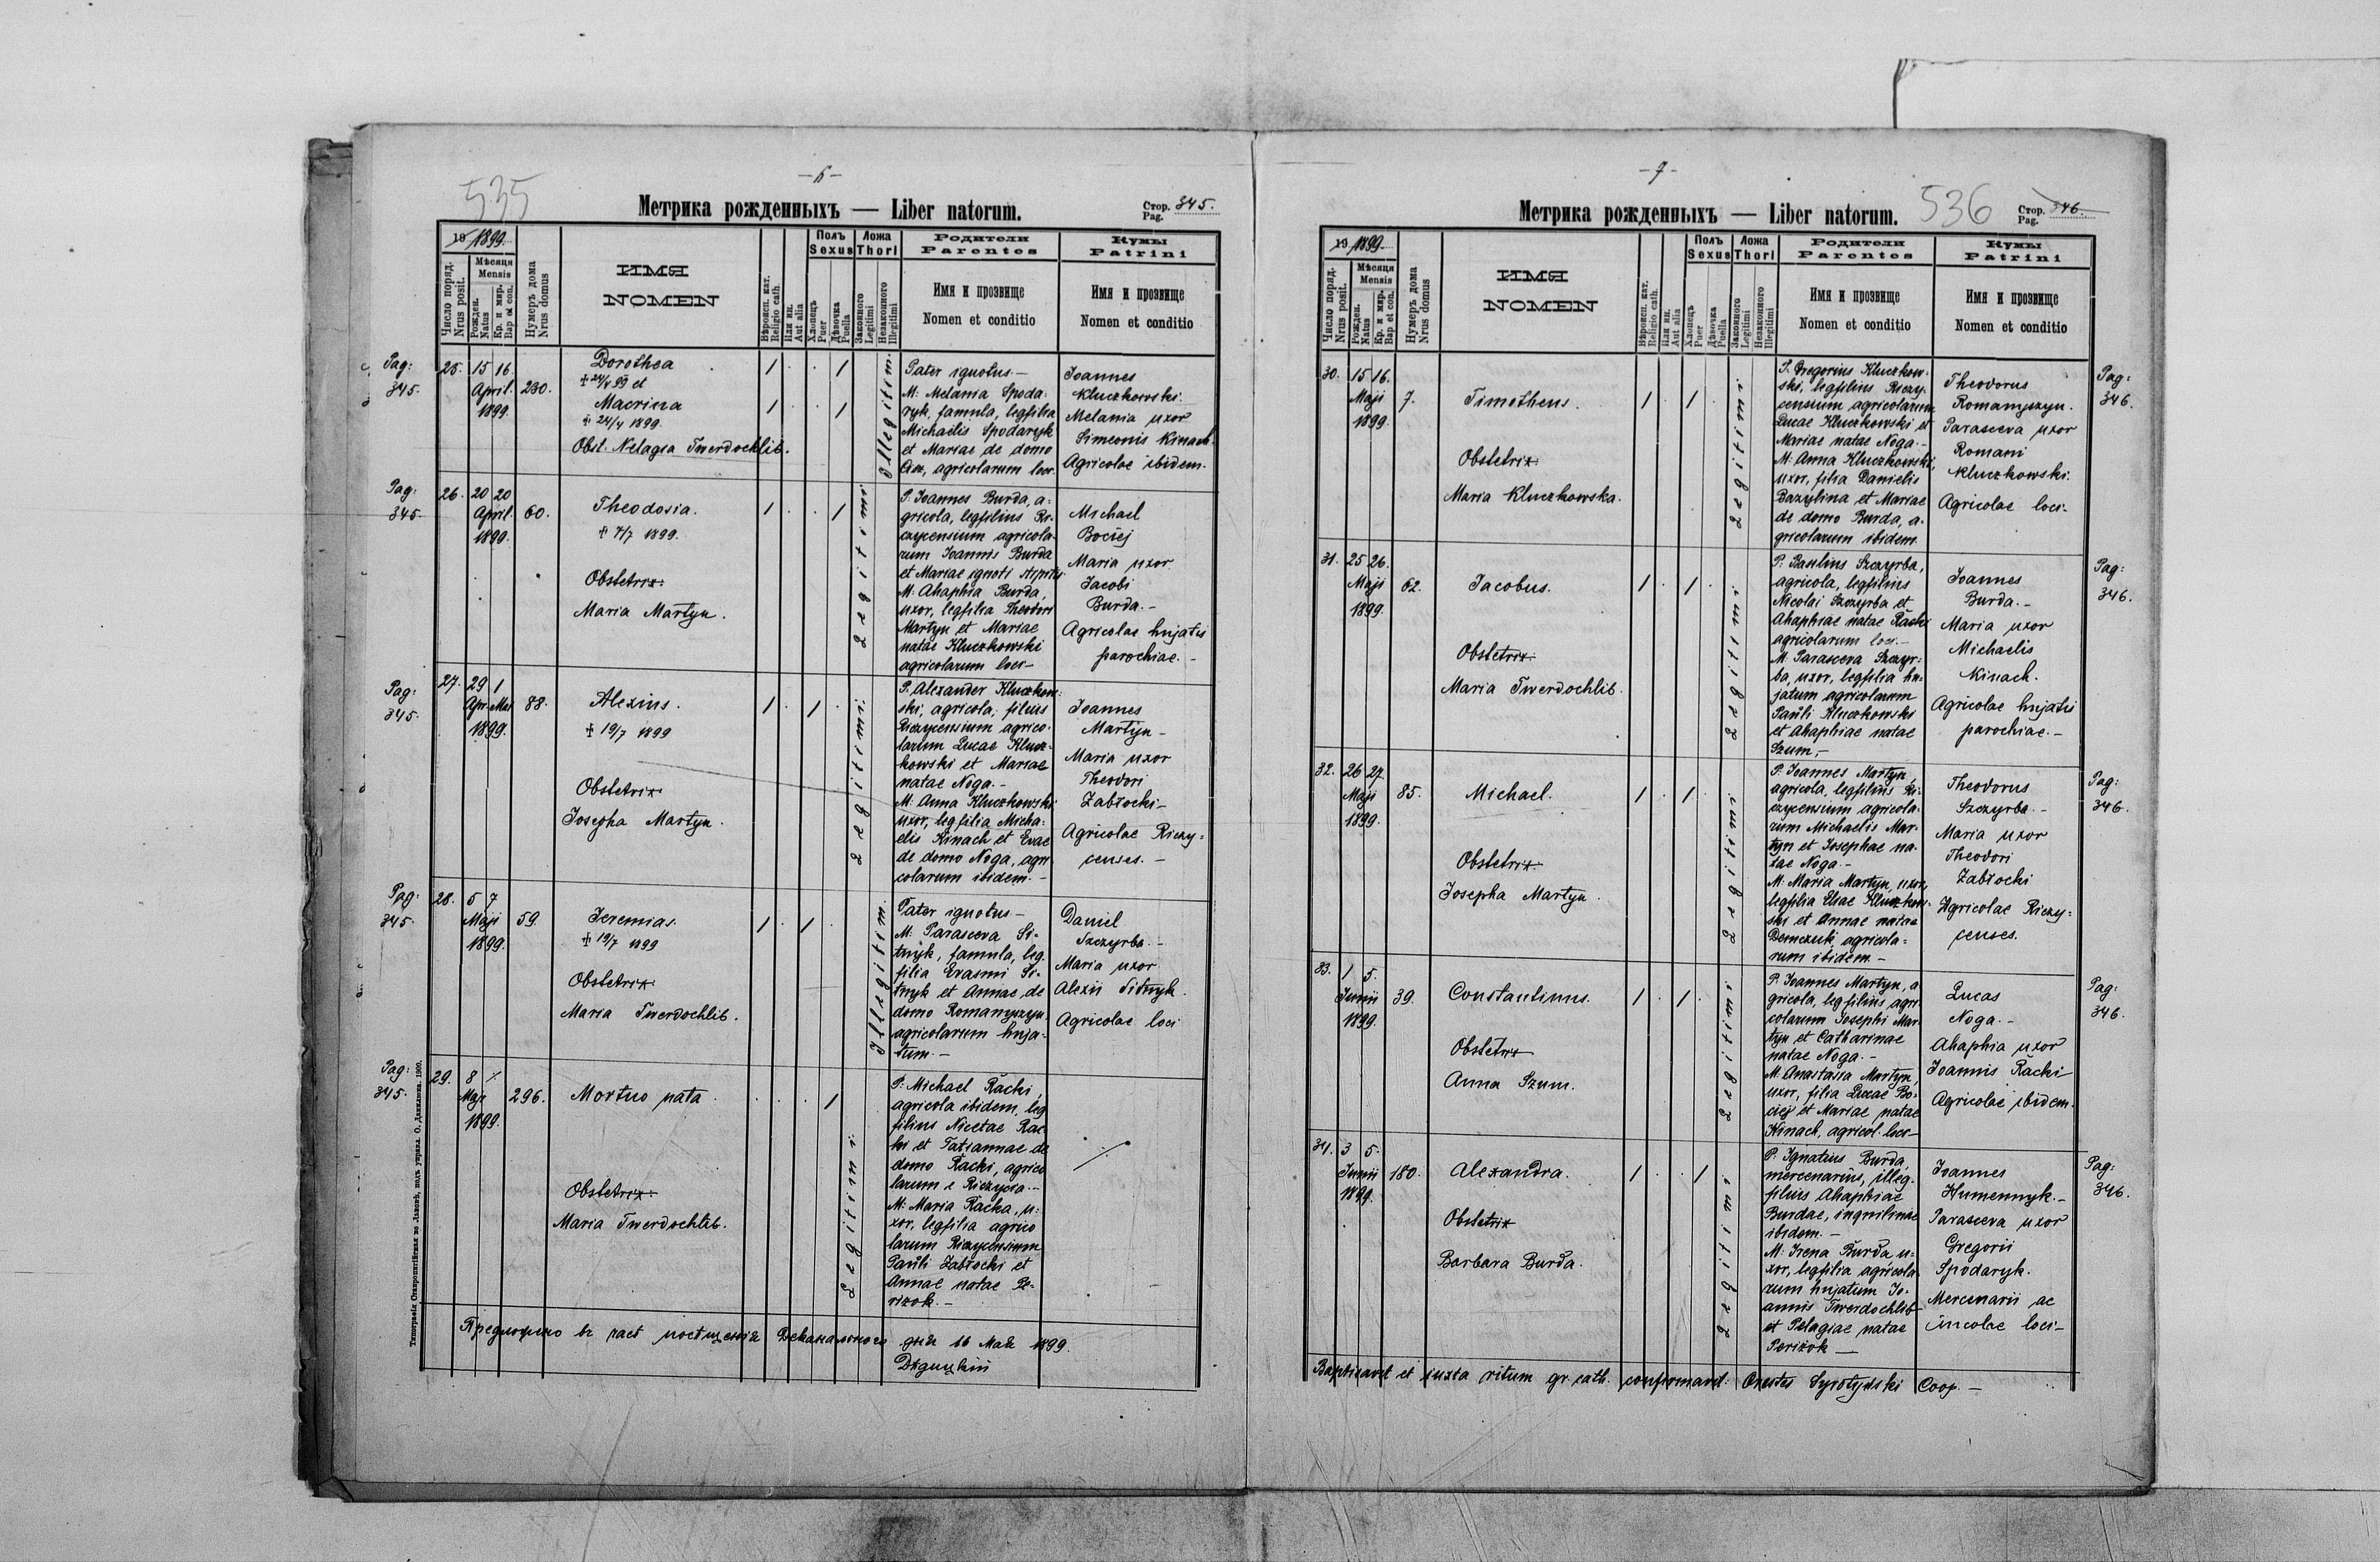 535
- 6 -
Метрика рожденныхъ — Liber natorum.
Стор. 345.
Pag.
19 1899.
Число поряд.
Nrus posit.
Мѣсяця
Mensis
Рожден.
Natus
Кр. и мир.
Bap et con.
Нумеръ дома
Nrus domus
ИМЯ
NOMEN
Вѣроисп. кат.
Religio cath.
Или ин.
Aut alia
Полъ
Sexus
Хлопецъ
Puer
Дѣвочка
Puella
Ложа
Thori
Законного
Legitimi
Незаконного
Illegitimi
Родители
Parentes
Имя и прозвище
Nomen et conditio
Кумы
Patrini
Имя и прозвище
Nomen et conditio
Pag: 345.
25. 15 16
April. 230.
1899.
Dorothea
Macrina
‡ 24/4 1899.
Obst. Twerdochlib.
Illegitim.
Pater ignotus -
M: Melania Spoda-
ryk, famula, legfilia
Michaelis Spodaryk
et Mariae de domo
agricolarum loci
Joannes
Kluczkowski.
Melania uxor
Simeonis Kinach.
Agricolae ibidem.
Pag: 345
26. 20 20
April. 60.
1899.
Theodosia.
‡ 7/7 1899.
Obstetrix:
Maria Martyn.
Legitimi
P. Joannes Burda, a-
gricola, legfilius Ri-
czycensium agricola-
rum Joannis Burda
et Mariae ignoti stipitis
M: Ahaphia Burda,
uxor, legfilia Theodori
Martyn et Mariae
natae Kluczkowski
agricolarum loci -
Michael
Bociej
Maria uxor
Jacobi
Burda. -
Agricolae hujatis
parochiae. -
Pag: 345.
27. 29 1
Apr. Mai 88.
1899.
Alexius.
‡ 19/7 1899
Obstetrix
Josepha Martyn.
Legitimi.
P. Alexander Kluczkow-
ski, agricola, filius
Riczycensium agrico-
larum Lucae Klucz-
kowski et Mariae
natae Noga. -
M: Anna Kluczkowski
uxor, legfilia Micha-
elis Kinach et Evae
de domo Noga, agri-
colarum ibidem. -
Joannes
Martyn -
Maria uxor
Theodori
Zabłocki -
Agricolae Riczy-
censes. -
Pag: 345.
28. 5 7
Maji 59.
1899.
Jeremias.
‡ 19/7 1899
Obstetrix:
Maria Twerdochlib.
Illegitim.
Pater ignotus -
M: Parasceva Si-
tnyk, famula, leg.
filia Erasmi Si-
tnyk et Annae, de
domo Romanyszyn,
agricolarum huja-
tum. -
Daniel
Szczyrba. -
Maria uxor
Alexii Sitnyk.
Agricolae loci
Pag: 345.
29. 8 ⁒
Maji 296.
1899.
Mortuo nata.
Obstetrix:
Maria Twerdochlib.
Legitimi
P: Michael Racki,
agricola ibidem, leg
filius Nicetae Rac-
ki et Tatiannae de
domo Racki, agrico
larum e Riczycia. -
M: Maria Racka, u-
xor, legfilia agrico
larum Riczycensium
Pauli Zabłocki et
Annae natae Pe-
rizok. -
Предложено въ часѣ посѣщенія Деканального дня 16 Мая 1899.
Дѣдицкій
Типографія Ставропигійская во Львовѣ, подъ управл. О. Данилюка. 1900.
- 7 -
Метрика рожденныхъ — Liber natorum.
536
Стор. 346.
Pag.
19 1899.
Число поряд.
Nrus posit.
Мѣсяця
Mensis
Рожден.
Natus
Кр. и мир.
Bap et con.
Нумеръ дома
Nrus domus
ИМЯ
NOMEN
Вѣроисп. кат.
Religio cath.
Или ин.
Aut alia
Полъ
Sexus
Хлопецъ
Puer
Дѣвочка
Puella
Ложа
Thori
Законного
Legitimi
Незаконного
Illegitimi
Родители
Parentes
Имя и прозвище
Nomen et conditio
Кумы
Patrini
Имя и прозвище
Nomen et conditio
30. 15 16.
Maji 7.
1899.
Timotheus.
Obstetrix
Maria Kluczkowska.
Legitimi
P. Gregorius Kluczkow-
ski, legfilius Riczy-
censium agricolarum
Lucae Kluczkowski et
Mariae natae Noga. -
M. Anna Kluczkowski,
uxor, filia Danielis
Bazylina et Mariae
de domo Burda, a-
gricolarum ibidem.
Theodorus
Romanyszyn.
Parasceva uxor
Romani
Kluczkowski.
Agricolae loci.
Pag: 346.
31. 25 26.
Maji 62.
1899.
Jacobus.
Obstetrix
Maria Twerdochlib.
Legitimi
P. Basilius Szczyrba,
agricola, legfilius
Nicolai Szczyrba et
Ahaphiae natae Racki
agricolarum loci. -
M. Parasceva Szczyr-
ba, uxor, legfilia hu-
jatum agricolarum
Pauli Kluczkowski
et Ahaphiae natae
Szum, -
Joannes
Burda. -
Maria uxor
Michaelis
Kinach.
Agricolae hujatis
parochiae. -
Pag: 346.
32. 26 27.
Maji 85.
1899.
Michael.
Obstetrix
Josepha Martyn.
Legitimi
P. Joannes Martyn,
agricola, legfilius Ri-
czycensium agricola-
rum Michaelis Mar-
tyn et Josephae na-
tae Noga. -
M. Maria Martyn, uxor,
legfilia Eliae Kluczkow-
ski et Annae natae
Demczuk, agricola-
rum ibidem. -
Theodorus
Szczyrba. -
Maria uxor
Theodori
Zabłocki
Agricolae Riczy-
censes.
Pag: 346.
33. 1 5.
Junii 39.
1899.
Constantinus.
Obstetrix
Anna Szum.
Legitimi
P. Joannes Martyn, a
gricola, legfilius agri-
colarum Josephi Mar-
tyn et Catharinae
natae Noga. -
M. Anastasia Martyn,
uxor, filia Lucae Bo-
ciej et Mariae natae
Kinach, agricol. loci -
Lucas
Noga. -
Ahaphia uxor
Joannis Racki
Agricolae ibidem.
Pag: 346.
34. 3 5.
Junii 180.
1899.
Alexandra.
Obstetrix
Barbara Burda.
Legitimi
P. Ignatius Burda,
mercenarius, illeg.
filius Ahaphiae
Burdae, inquilinae
ibidem. -
M: Irena Burda u-
xor, legfilia agricola
rum hujatum Jo-
annis Twerdochlib
et Pelagiae natae
Perizok -
Joannes
Humennyk. -
Parasceva uxor
Gregorii
Spodaryk.
Mercenarii ac
incolae loci -
Pag: 346.
Baptisavit et juxta ritum gr. cath. confirmavit: Orestes Coop. -